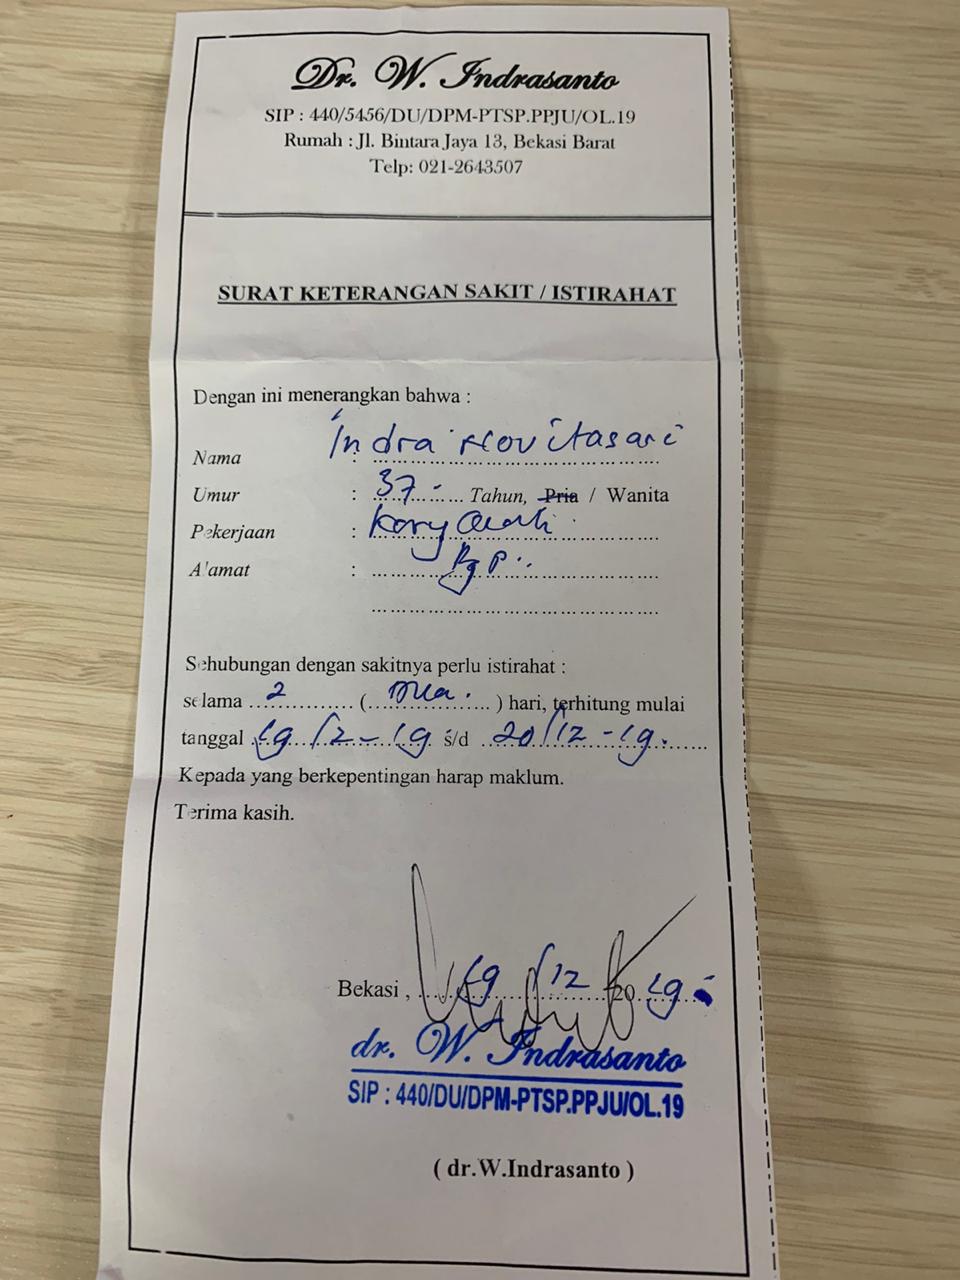 Dr. W. Indrasanto
SIP : 440/5456/DU/DPM-PTSP.PPJU/OL.19
Rumah : Jl. Bintara Jaya 13, Bekasi Barat
Telp: 021-2643507
SURAT KETERANGAN SAKIT / ISTIRAHAT
Dengan ini menerangkan bahwa :
Nama : Indra Novitasari
Umur : 37 Tahun, Pria / Wanita
Pekerjaan : Karyawati
Alamat :
Sehubungan dengan sakitnya perlu istirahat :
selama 2 ( Dua ) hari, terhitung mulai
tanggal 19/12-19 s/d 20/12-19.
Kepada yang berkepentingan harap maklum.
Terima kasih.
Bekasi , 19/12 2019
dr. W. Indrasanto
SIP : 440/DU/DPM-PTSP.PPJU/OL.19
( dr.W.Indrasanto )